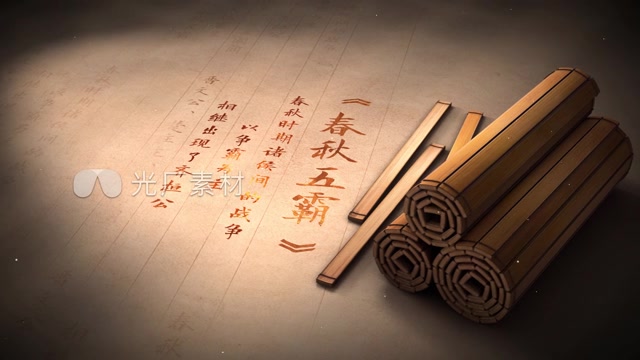 《春秋五霸》
春秋时期诸侯间的战争
以争霸为主
相继出现了齐桓公
晋文公、
光厂素材